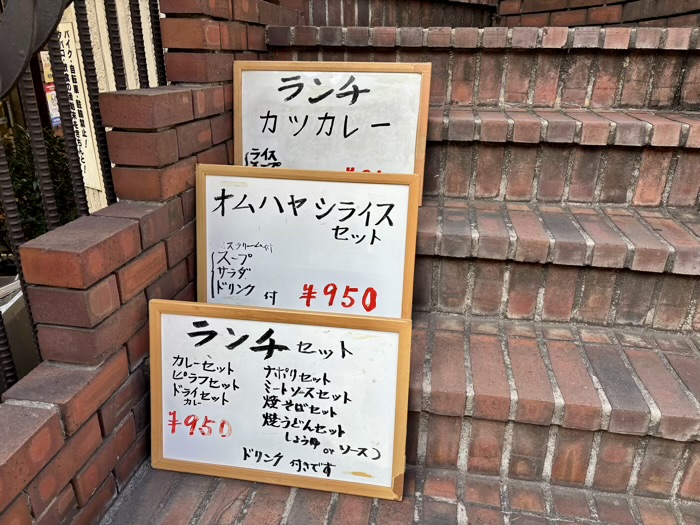 ランチ
カツカレー
ライス
スープ
オムハヤシライス
セット
スープ
サラダ
ドリンク 付
¥950
ランチセット
カレーセット
ピラフセット
ドライセット
カレー
¥950
ナポリセット
ミートソースセット
焼そばセット
焼うどんセット
しょうゆ or ソース
ドリンク 付きです
バイク・自転車・駐輪禁止!